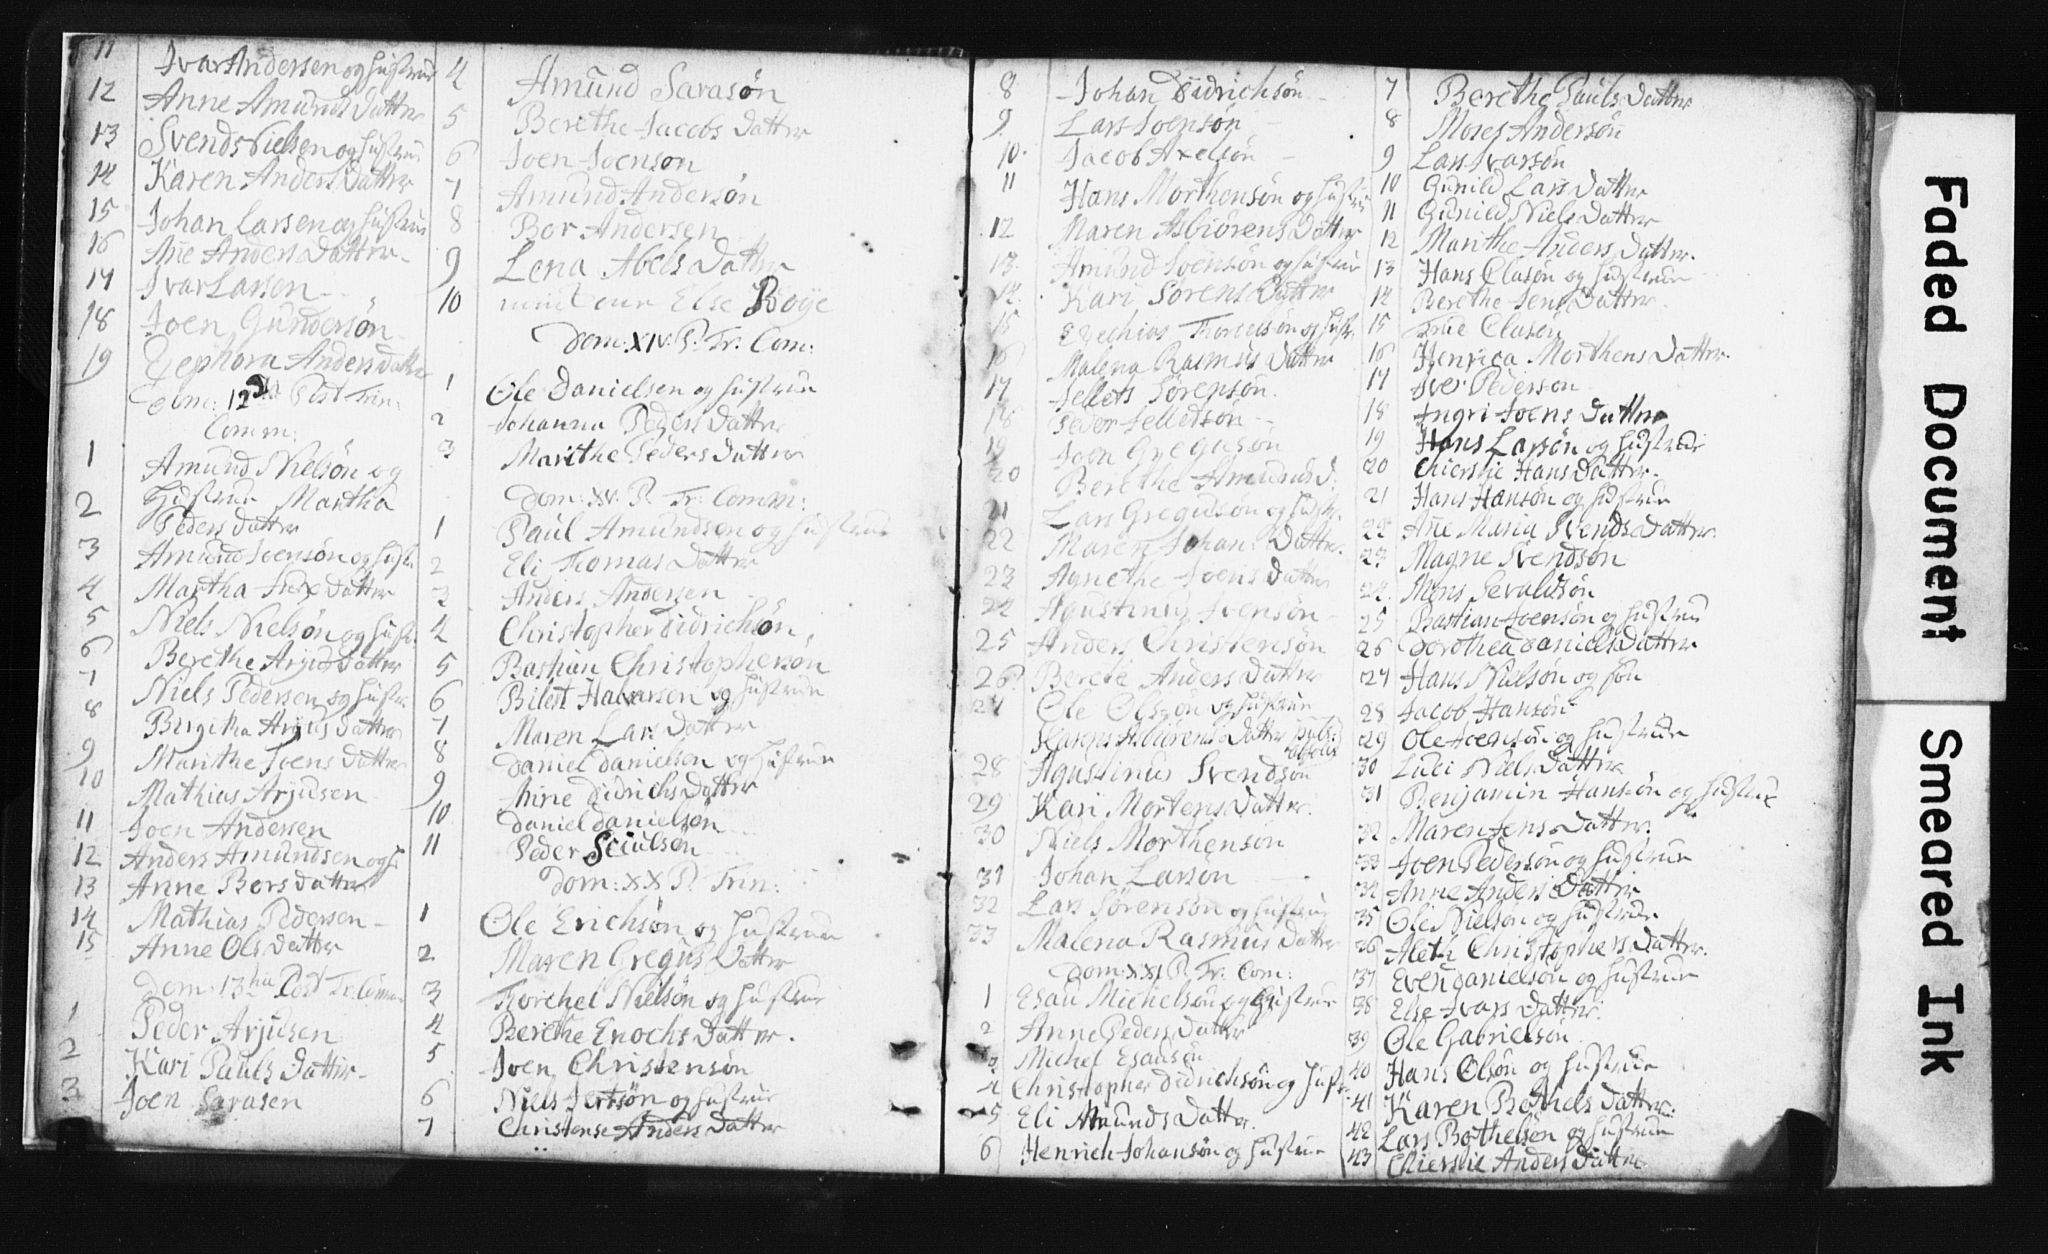 11 Ivar Andersen og hustrue
12 Anne Amunds Datter
13 Svend Nielsen og hustru
14 Karen Anders Datter
15 Johan Larsen og hustrue
16 Añe Anders Datter
17 Ivar Larsen
18 Joen Gundersøn
19 Zephora Anders Datter
Dom: 12 Post Trin:
Comm:
1 Amund Nielsøn og
2 Hustrue Martha
Peders Datter
3 Amund Joensøn og hustr
4 Martha Datter
5 Niels Nielsøn og hustr.
6 Berethe Datter
7 Niels Pedersen og hustr.
8 Birgitha Datter
9 Marithe Joens Datter
10 Mathias Arjusen
11 Joen Andersen
12 Anders Amundsen og h
13 Anne Bors datter
14 Mathias Pedersen
15 Anne Ols datter
Dom: 13 Post Tr: Comm
1 Peder Arjusen
2 Kari Pauls Datter
3 Joen Sarasen
4 Amund Sarasøn
5 Berethe Jacobs Datter
6 Joen Joensøn
7 Amund Andersøn
8 Bor Andersen
9 Lena Abels Datter
10 Else Boye
Dom: XIV. P. Tr. Com:
1 Ole Danielsen og hustrue
2 Johanna Peders Datter
3 Marithe Peders Datter
Dom: XV. P. Tr: Comm:
1 Paul Amundsen og hustrue
2 Eli Thomas Datter
3 Anders Andersen
4 Christopher Didrichsøn
5 Bastian Christophersøn
6 Halvarsen og hustrue
7 Maren Lars Datter
8 Daniel Danielsen og hustrue
9 Anne Didrichs Datter
10 Daniel Danielsen
11 Peder
Dom: XX P. Trin:
1 Ole Erichsøn og hustrue
2 Maren Gregus Datter
3 Torchel Nielsøn og hustrue
4 Berethe Enochs Datter.
5 Joen Christensøn
6 Niels og hustrue
7 Christense Anders Datter
8 Johan Didrichsøn
9 Lars Joensøn
10. Jacob Axelsøn
11 Hans Morthensøn og hustru
12 Maren Asbiørens Datter
13 Amund Joensøn og hustrue
14. Kari Sørens Datter
15 Ezechias og hustr
16 Malena Rasmus Datter
17 Jellets Sørensøn.
18 Peder Jelletsøn
19 Joen Gregusøn
20 Berethe Amunds d.
21 Lars Gregusøn og hustr.
22 Maren Johan: Datter.
23 Agnethe Joens Datter
24 Agustinus Joensøn
25 Anders Christensøn
26 Berete Anders Datter
27 Ole Olsøn og hustrue
Karen Asbiørens Datter
28 Agustinus Svendsøn
29 Kari Mortens Datter.
30 Niels Morthensøn
31 Johan Larsøn
32 Lars Sørensøn og hustrue
33 Malena Rasmus Datter
Dom: XXI P. Tr: Com:
1 Esau Michelsøn og hustrue
2 Anne Peders Datter
3 Michel Esausøn
4 Christopher Didrichsøn og hustr
5 Eli Amunds Datter.
6 Henrich Johansøn og hustrue
7 Berethe Pauls Datter
8 Moses Andersøn
9 Lars Ivarsøn
10 Gunild Lars Datter
11 Gunild Niels Datter
12 Marithe Anders Datter.
13 Hans Clasøn og hustrue
14 Berethe Jens Datter.
15 Clasen
16 Henrica Morthens Datter.
17 Iver Pedersøn
18 Ingri Joens Datter
19 Hans Larsøn og hustrue
20 Chierstie Hans Datter.
21 Hans Hansøn og hustrue
22 Añe Maria Svends Datter.
23 Magne Svendsøn
24. Mons
25 Bastian Joensøn og hustrue
26 Dorothea Daniels Datter
27 Hans Nielsøn og søn
28 Jacob Hansøn
29 Ole Joensøn og hustrue
30 Luci Niels Datter
31 Benjamin Hansøn og hustrue
32 Maren Jens Datter.
33 Joen Pedersøn og hustrue
34 Anne Anders Datter
35 Ole Nielsøn og hustrue
36 Aleth Christophers Datter.
37 Even Danielsøn og hustrue
38 Else Ivars Datter.
39 Ole Gabrielsøn
40 Hans Olsøn og hustrue
41 Karen Datter.
42 Lars og hustrue
43 Chierstie Anders Datter
Faded Document
Smeared Ink